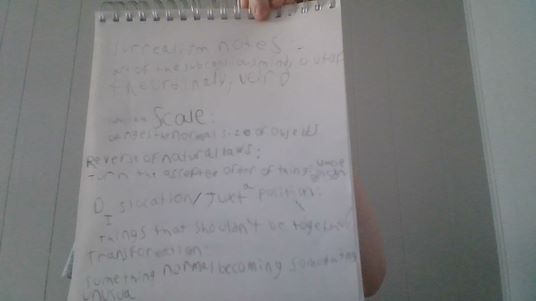 Surrealism notes -
art of the subconscious mind, out of
the ordinary, weird
Scale:
changes the normal size of objects
Reverse of natural laws:
- turn the accepted order of things
Dislocation/Juxtapositions:
Things that shouldn't be together
Transformation:
Something normal becoming something
unusual